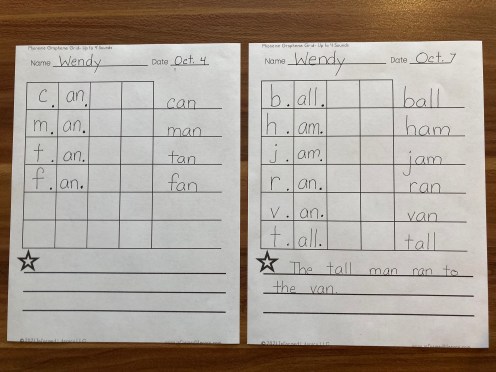 Phoneme Grapheme Grid- Up to 4 Sounds
Name Wendy Date Oct. 4
c. an. can
m. an. man
t. an. tan
f. an. fan
Phoneme Grapheme Grid- Up to 4 Sounds
Name Wendy Date Oct. 7
b. all. ball
h. am. ham
j. am. jam
r. an. ran
v. an. van
t. all. tall
The tall man ran to
the van.